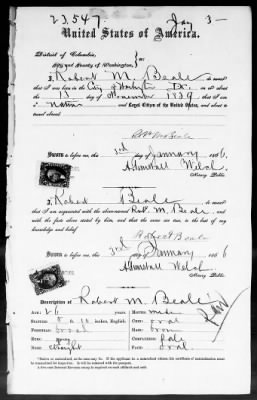 23,547. Jany 3
United States of America.
District of Columbia,
City and County of Washington,
I, Robert M. Beale do swear
that I was born in the City of Washington D.C. on or about
day of November 1839
Native and Loyal Citizen of the United States, and about to
travel abroad.
Robt M Beale
Sworn to before me, this 3rd day of January 1866
A. Thruestall Welsh
Notary Public.
I, Robert Beale do swear
that I am acquainted with the above-named Robt. M. Beale, and
with the facts above stated by him, and that the same are true, to the best of my
knowledge and belief.
Robert Beale
Sworn to before me, this 3rd day of January 1866
Welsh
Notary Public.
Description of Robert M. Beale
Age: 26 years. Mouth:
Stature: 5 10 inches, English. Chin: oval
Forehead: broad Hair: brown
Eyes: grey Complexion: pale
Nose: straight Face: oval